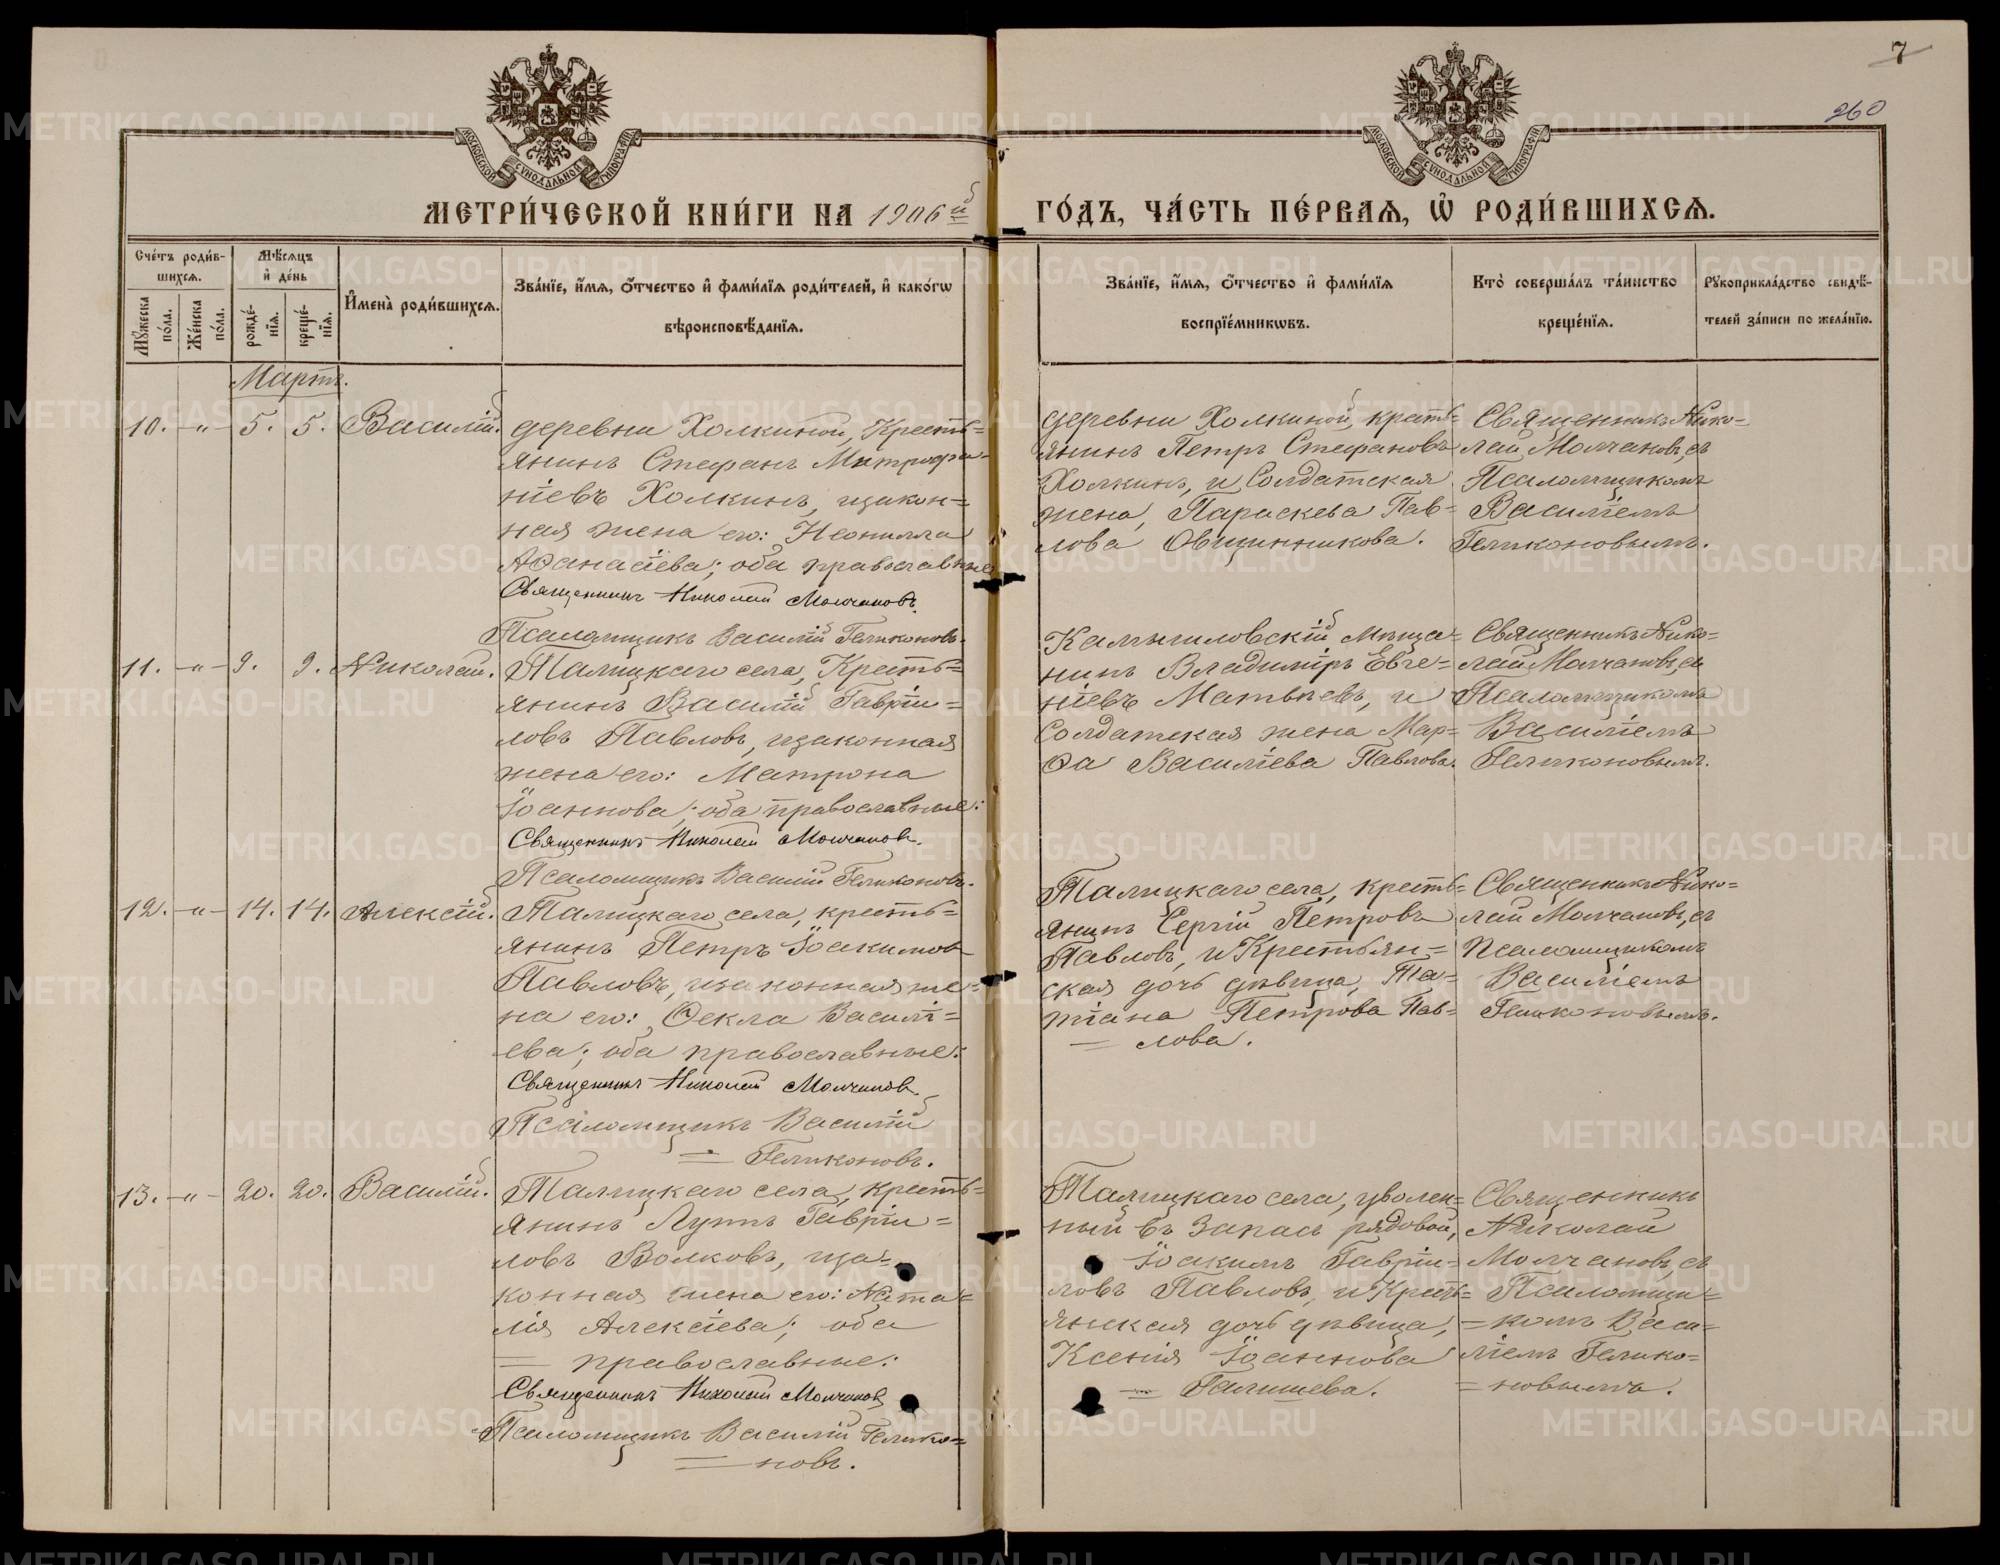 7
260
МОСКОВСКОЙ СѴНОДАЛЬНОЙ ТИПОГРАФІИ
МОСКОВСКОЙ СѴНОДАЛЬНОЙ ТИПОГРАФІИ
МЕТРИ́ЧЕСКОЙ КНИ́ГИ НА 1906й
ГО́ДЪ, ЧА́СТЬ ПЕ́РВАѦ, Ѡ҆ РОДИ́ВШИХСѦ.
Сче́тъ роди́в-
шихсѧ.
Мꙋ́жеска по́ла.
Же́нска по́ла.
Мѣ́сѧцъ
и҆ де́нь
рожде́-нїѧ.
креще́-нїѧ.
И҆мена̀ роди́вшихсѧ.
Зва́нїе, и҆́мѧ, Ѻ҆́тчество и҆ фами́лїѧ роди́телей, и҆ како́гѡ
вѣроисповѣ́данїѧ.
Зва́нїе, и҆́мѧ, Ѻ҆́тчество и҆ фами́лїѧ
воспрїе́мникѡвъ.
Кто̀ соверша́лъ та́инство
креще́нїѧ.
Рꙋкоприкла́дство свидѣ́-
телей за́писи по жела́нїю.
Мартъ.
10. -"- 5. 5. Василій.
деревни Холкиной, Кресть=
янинъ Стефанъ Митрофа-
ніевъ Холкинъ, изакон=
ная жена его: Неонилла
Аѳанасіева; оба православные
Священникъ Николай Молчановъ.
Псаломщикъ Василій Геликоновъ.
деревни Холкиной, кресть=
янинъ Петръ Стефановъ
Холкинъ, и Солдатская
жена, Параскева Пав=
лова Овчинникова.
Священникъ Нико=
лай Молчановъ, съ
Псаломщикомъ
Василіемъ
Геликоновымъ.
11. -"- 9. 9. Николай.
Талицкаго села, Кресть=
янинъ Василій Гавріи=
ловъ Павловъ, изаконная
жена его: Матрона
Іоаннова; оба православные:
Священникъ Николай Молчановъ.
Псаломщикъ Василій Геликоновъ.
Камышловскій мѣща=
нинъ Владиміръ Евге=
ніевъ Матвѣевъ, и
Солдатская жена Мар=
ѳа Василіева Павлова.
Священникъ Нико=
лай Молчановъ, съ
Псаломщикомъ
Василіемъ
Геликоновымъ.
12. -"- 14. 14. Алексій.
Талицкаго села, кресть=
янинъ Петръ Іоакимовъ
Павловъ, изаконная же=
на его: Ѳекла Василі=
ева; оба православные:
Священникъ Николай Молчановъ
Псаломщикъ Василій
= Геликоновъ.
Талицкаго села, кресть=
янинъ Сергій Петровъ
Павловъ, и Крестьян=
ская дочь дѣвица, Та=
тіана Петрова Пав=
= лова.
Священникъ Нико=
лай Молчановъ, съ
Псаломщикомъ
Василіемъ
Геликоновымъ.
13. -"- 20. 20. Василій.
Талицкаго села, кресть=
янинъ Луппъ Гавріи=
ловъ Волковъ, иза=
конная жена его: Ната=
лія Алексіева; оба
= православные:
Священникъ Николай Молчановъ
Псаломщикъ Василій Гелико=
= новъ.
Талицкаго села, уволен=
ный въ Запасъ рядовой,
Іоакимъ Гавріи=
ловъ Павловъ, и Кресть=
янская дочь дѣвица,
Ксенія Іоаннова
= Галишева.
Священникъ
Николай
Молчановъ, съ
Псаломщи=
=комъ Васи=
ліемъ Гелико=
= новымъ.
METRIKI.GASO-URAL.RU